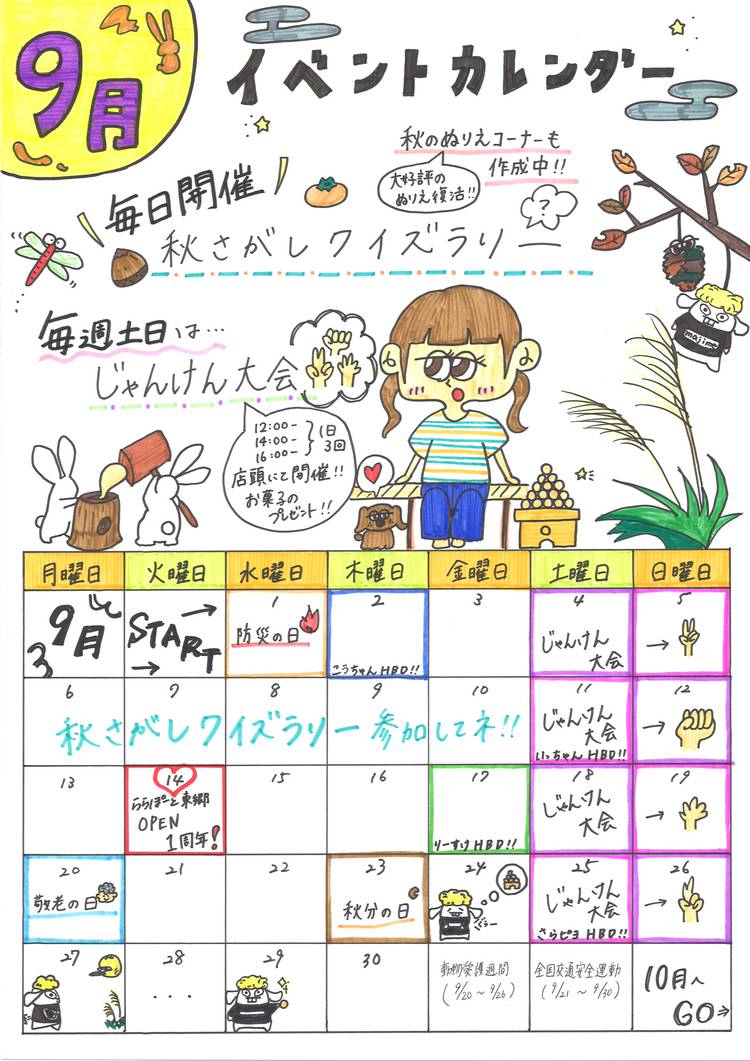 9月
イベントカレンダー
秋のぬりえコーナーも
作成中!!
大好評の
ぬりえ復活!!
毎日開催
?
秋さがしクイズラリー
majime
毎週土日は…
じゃんけん大会
12:00-
14:00-
16:00-
1日
3回
店頭にて開催!!
お菓子の
プレゼント!!
月曜日 火曜日 水曜日 木曜日 金曜日 土曜日 日曜日
9月
START
→
→
1
防災の日
2
こうちゃんHBD!!
3
4
じゃんけん
大会
5
→
6 7 8 9 10
秋さがしクイズラリー参加してネ!!
11
じゃんけん
大会
いっちゃんHBD!!
12
→
13
14
ららぽーと東郷
OPEN
1周年!
15
16
17
りーすけHBD!!
18
じゃんけん
大会
19
→
20
敬老の日
21
22
23
秋分の日
24
25
じゃんけん
大会
さらピヨHBD!!
26
→
27
28
...
29
30
動物愛護週間
(9/20～9/26)
全国交通安全運動
(9/21～9/30)
10月へ
GO⇒